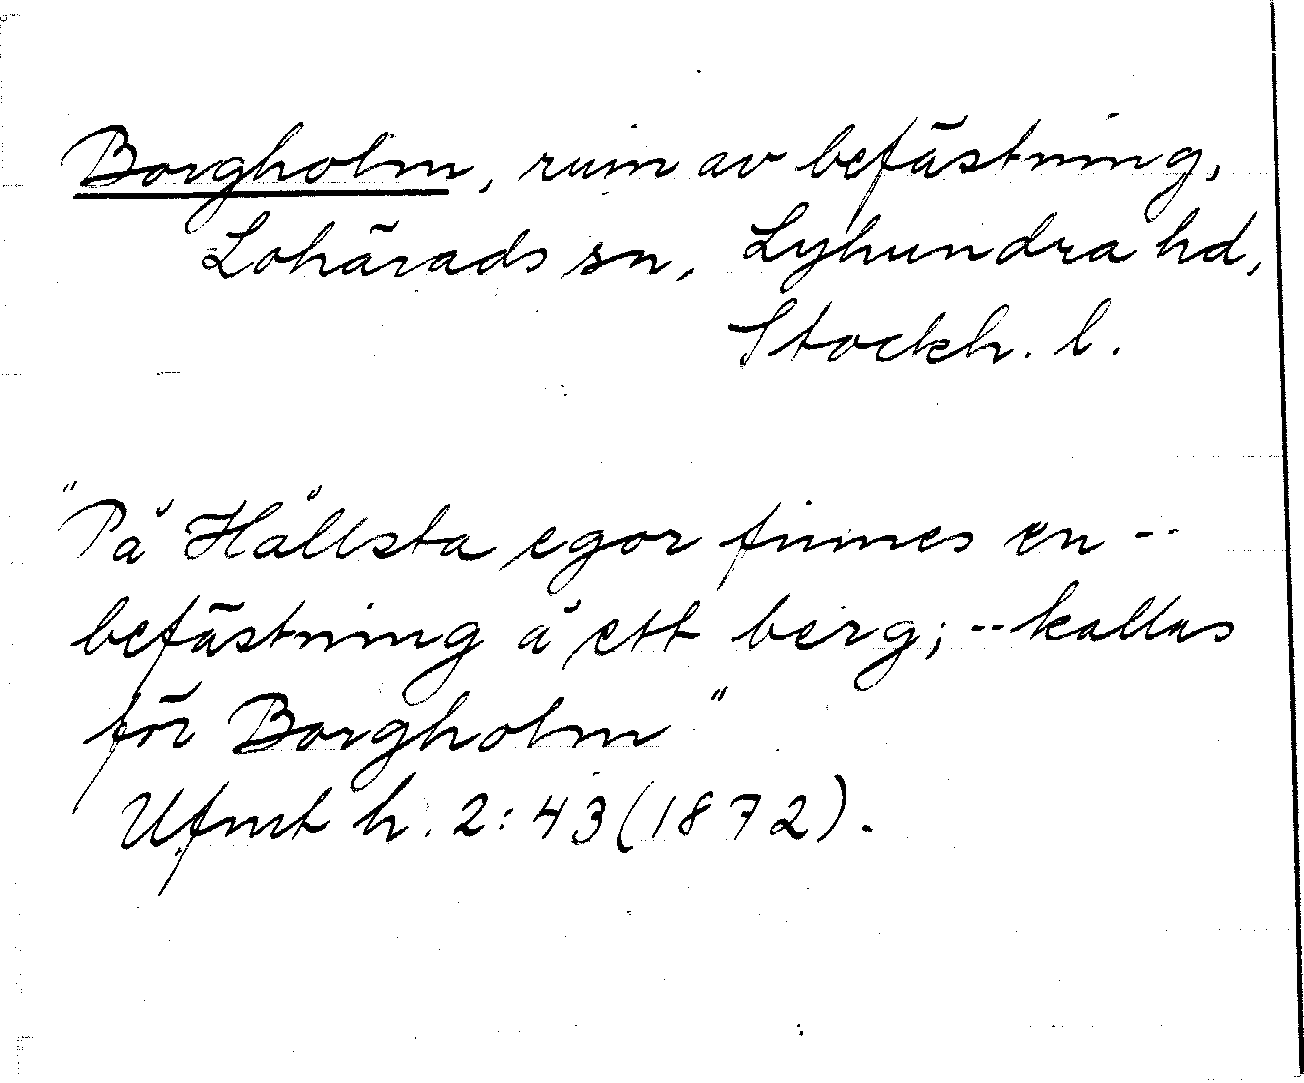 Borgholm, ruin av befästning,
Lohärads sn, Lyhundra hd,
Stockh. l.
"På Hållsta egor finnes en --
befästning å ett berg; -- kallas
för Borgholm"
Ufmt h. 2:43 (1872).